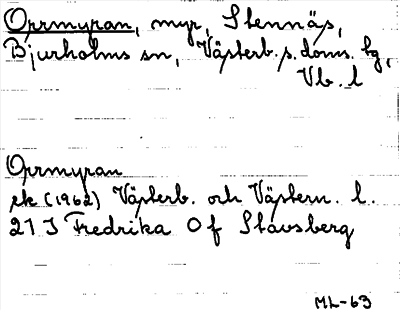 Orrmyran, myr, Stennäs,
Bjurholms sn, Västerb. s. doms. bg,
Vb. l
Orrmyran
ek (1962) Västerb. och Västern. l.
21 J Fredrika 0 f Stavsberg
ML-63